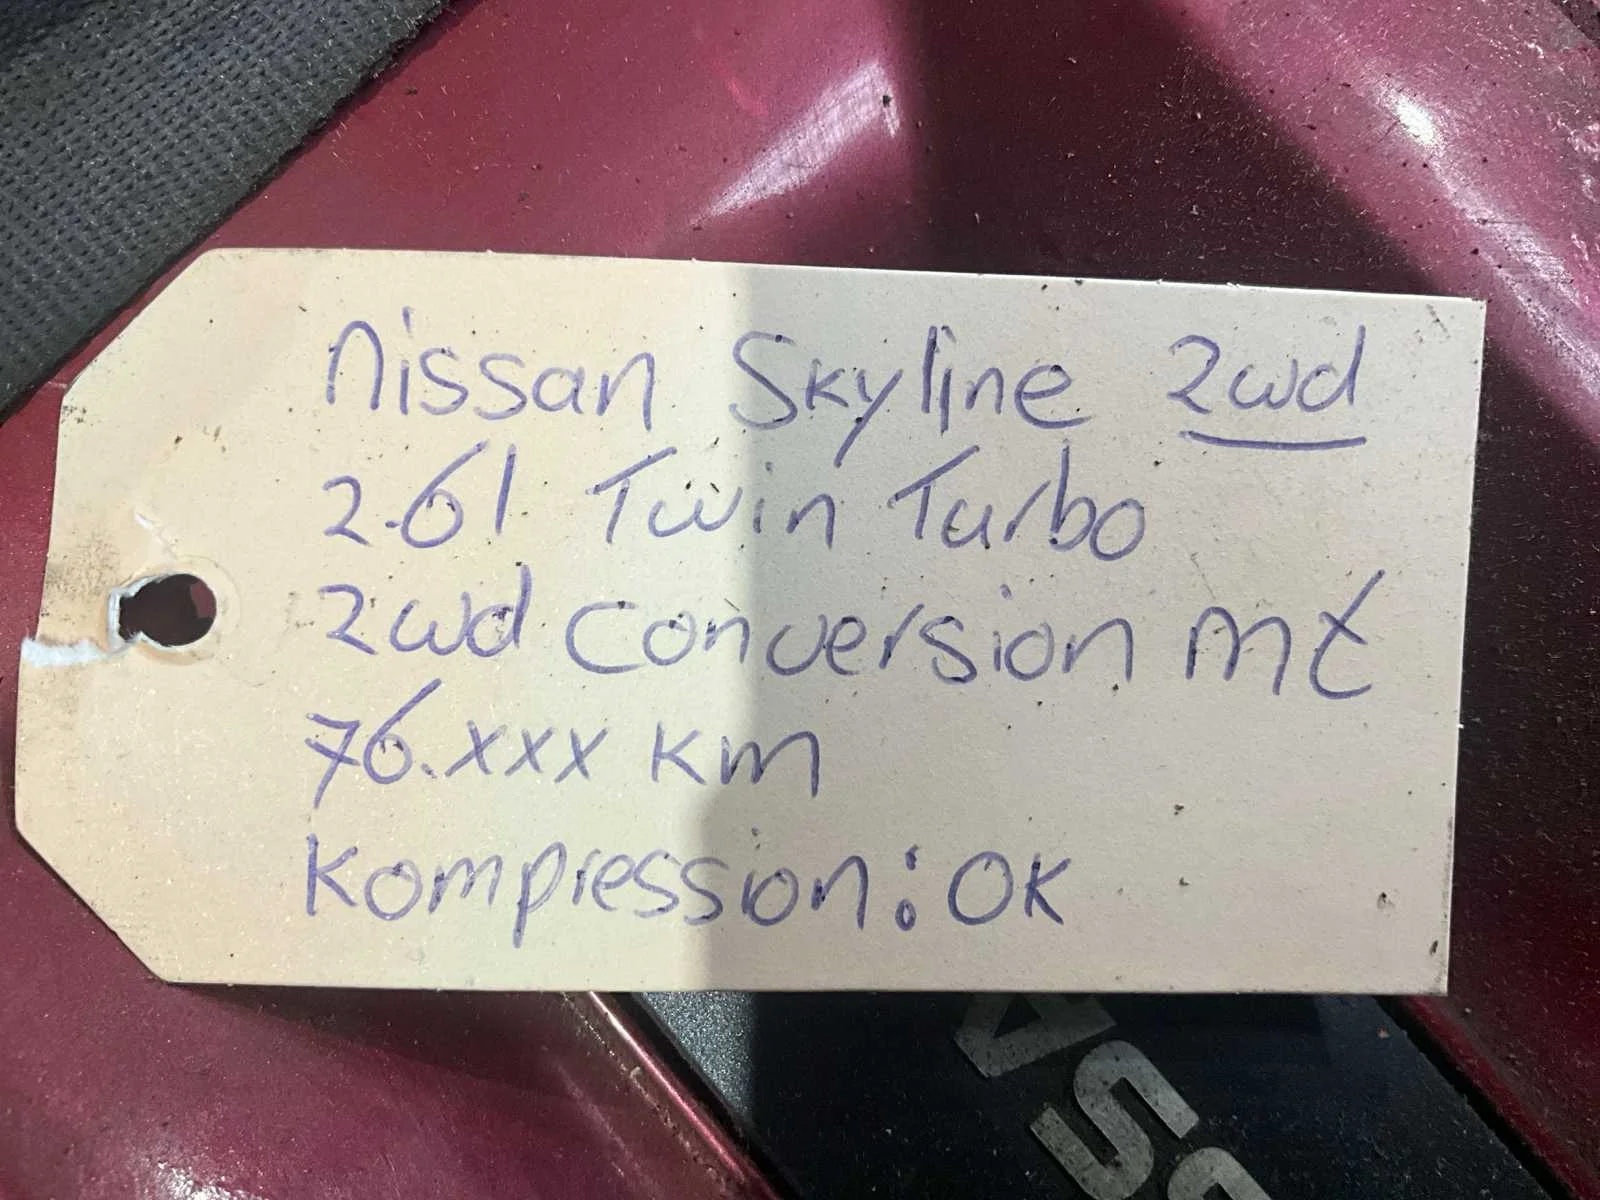 Nissan Skyline 2wd
2.6l Twin Turbo
2wd Conversion MT
76.xxx km
Kompression: OK